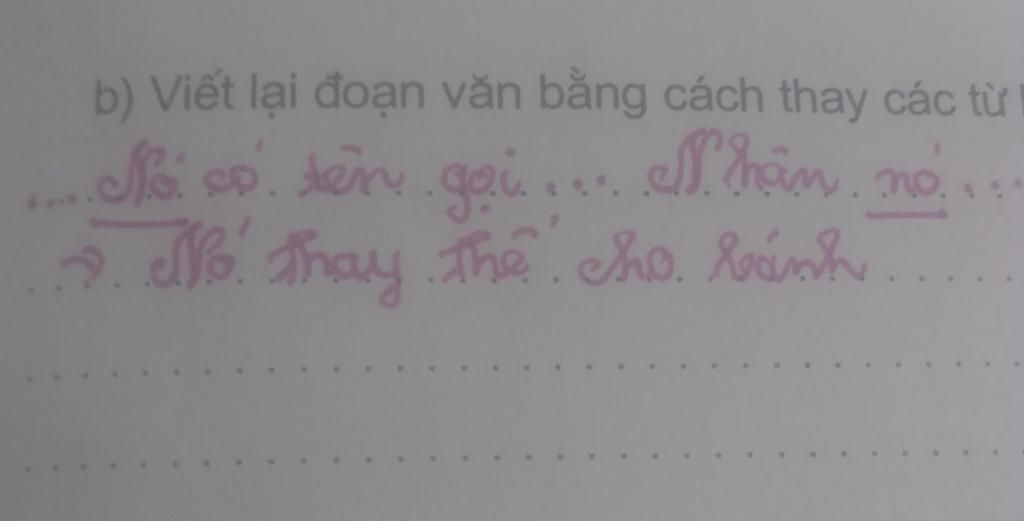 b) Viết lại đoạn văn bằng cách thay các từ
.... Nó có tên gọi ... Nhân nó ...
→ Nó thay thế cho bánh